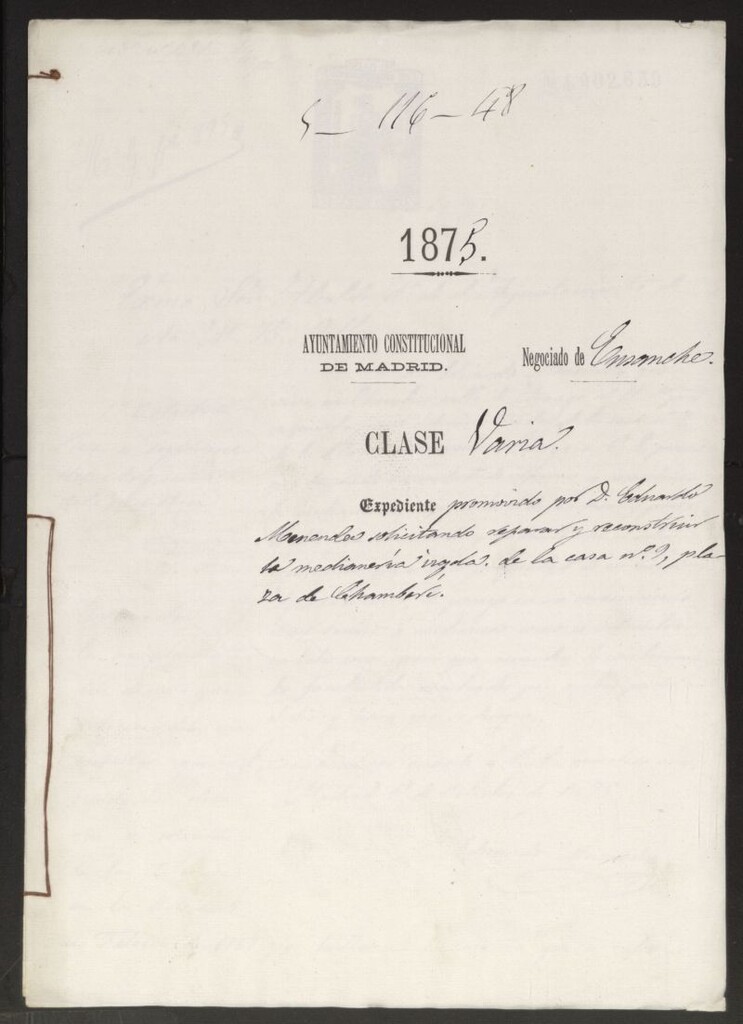 5 - 116 - 48
1875.
AYUNTAMIENTO CONSTITUCIONAL
DE MADRID.
Negociado de Ensanche.
CLASE Varia.
Expediente promovido por D. Eduardo
Menendez solicitando reparar y reconstruir
la medianería izqda. de la casa nº 9, pla-
za de Chamberí.